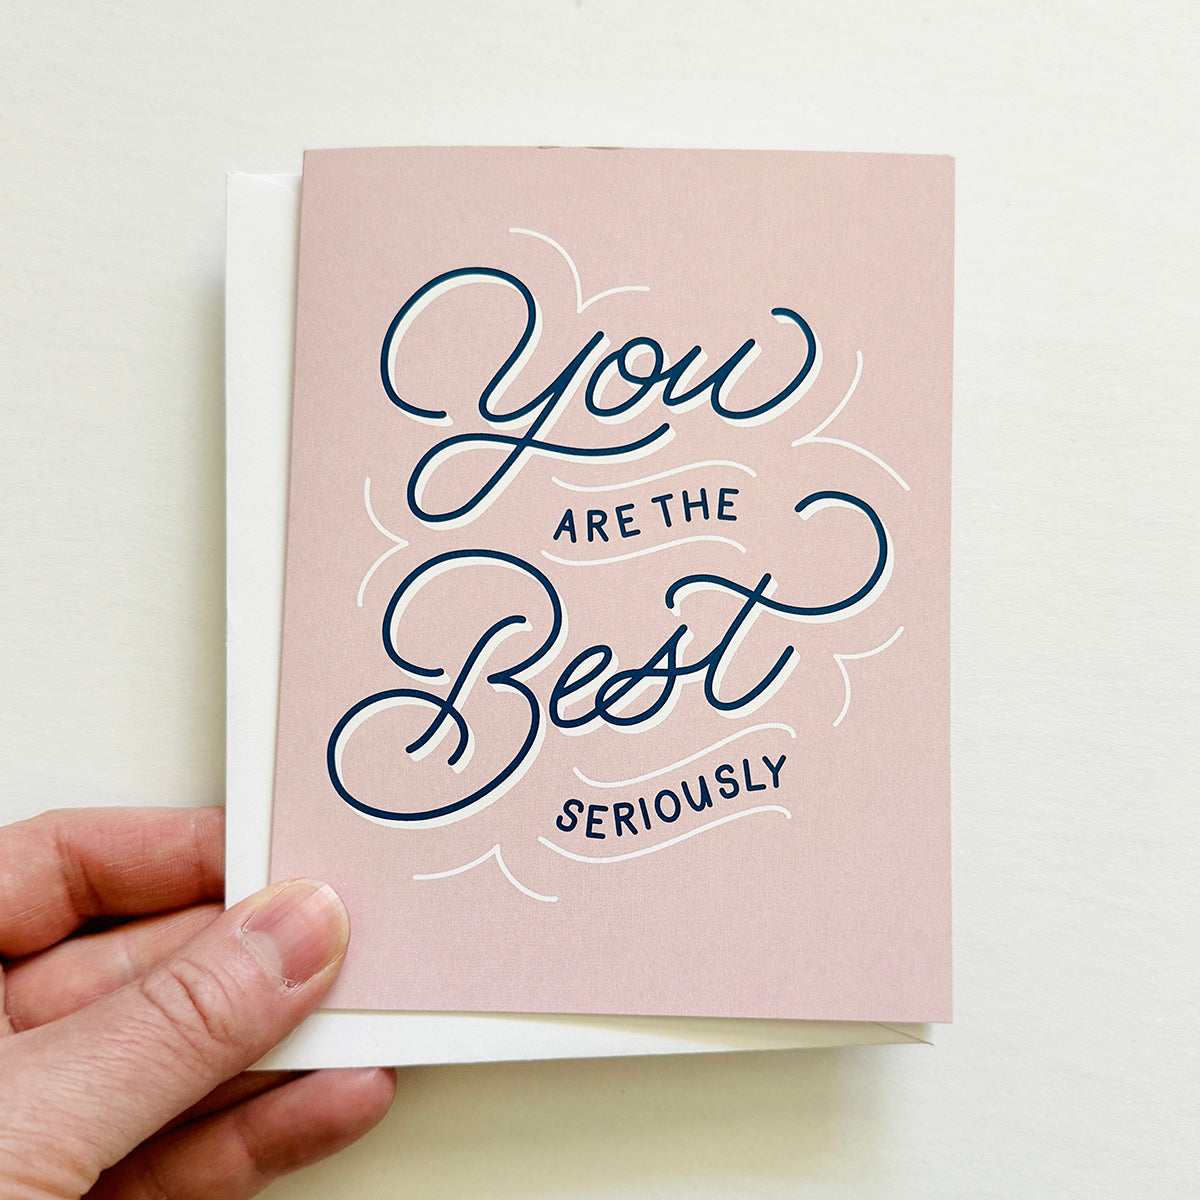 You
ARE THE
Best
SERIOUSLY